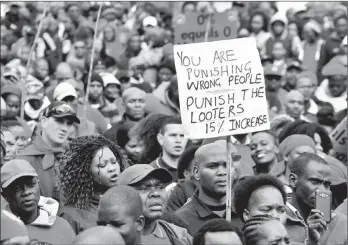 0%
equals 0
YOU ARE
PUNISHING
WRONG PEOPLE
PUNISH THE
LOOTERS
15% INCREASE